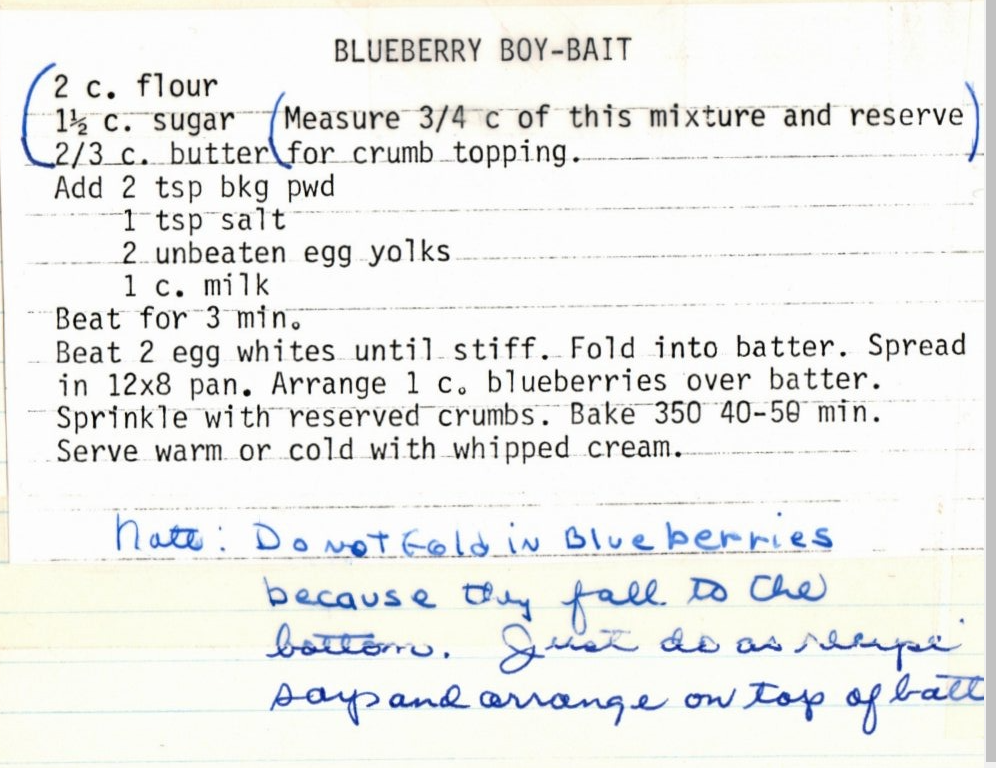 BLUEBERRY BOY-BAIT
2 c. flour
1½ c. sugar (Measure 3/4 c of this mixture and reserve
2/3 c. butter for crumb topping.)
Add 2 tsp bkg pwd
1 tsp salt
2 unbeaten egg yolks
1 c. milk
Beat for 3 min.
Beat 2 egg whites until stiff. Fold into batter. Spread
in 12x8 pan. Arrange 1 c. blueberries over batter.
Sprinkle with reserved crumbs. Bake 350 40-50 min.
Serve warm or cold with whipped cream.
Note: Do not fold in Blueberries
because they fall to the
bottom. Just do as recipe
says and arrange on top of batt